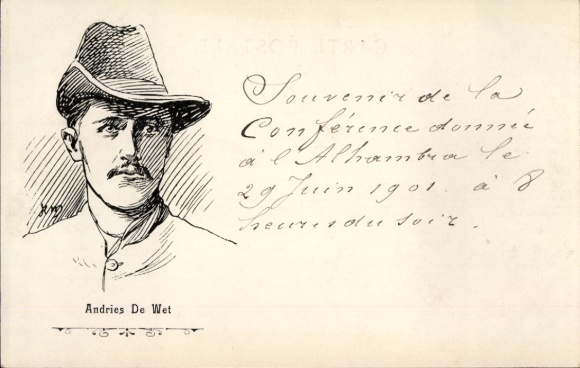 Souvenir de la
Conférence donnée
à l'Alhambra le
29 Juin 1901. à 8
heures du soir.
Andries De Wet